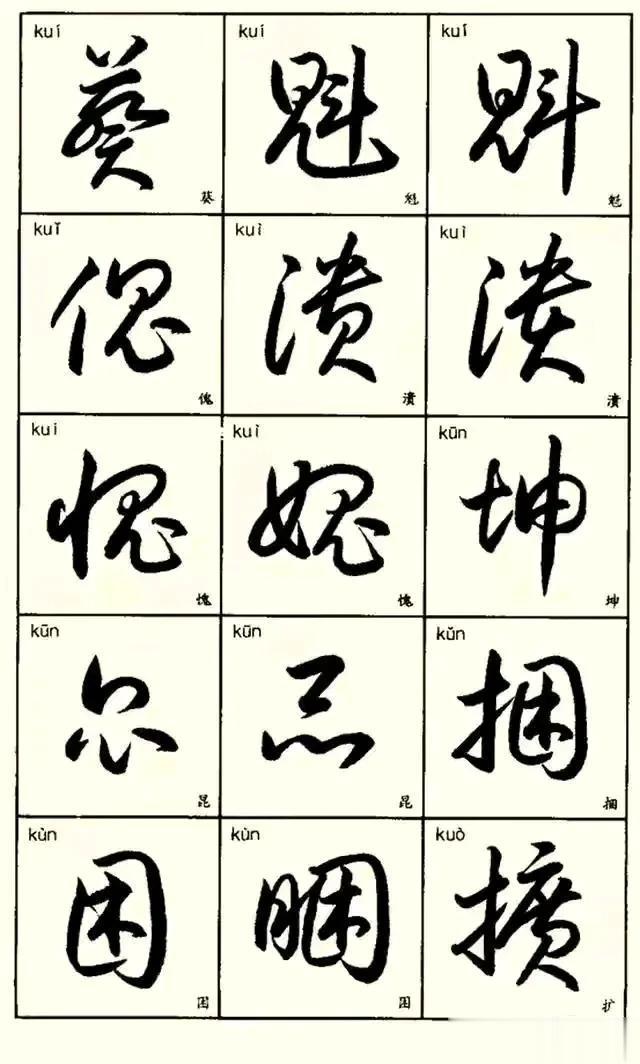 kuí kuí kuǐ
葵 魁 魁
葵 魁 魁
kuǐ kuì kuì
傀 潰 潰
傀 潰 潰
kuì kuì kūn
愧 媿 坤
愧 愧 坤
kūn kūn kǔn
昆 昆 捆
昆 昆 捆
kùn kùn kuò
困 睏 擴
困 困 扩